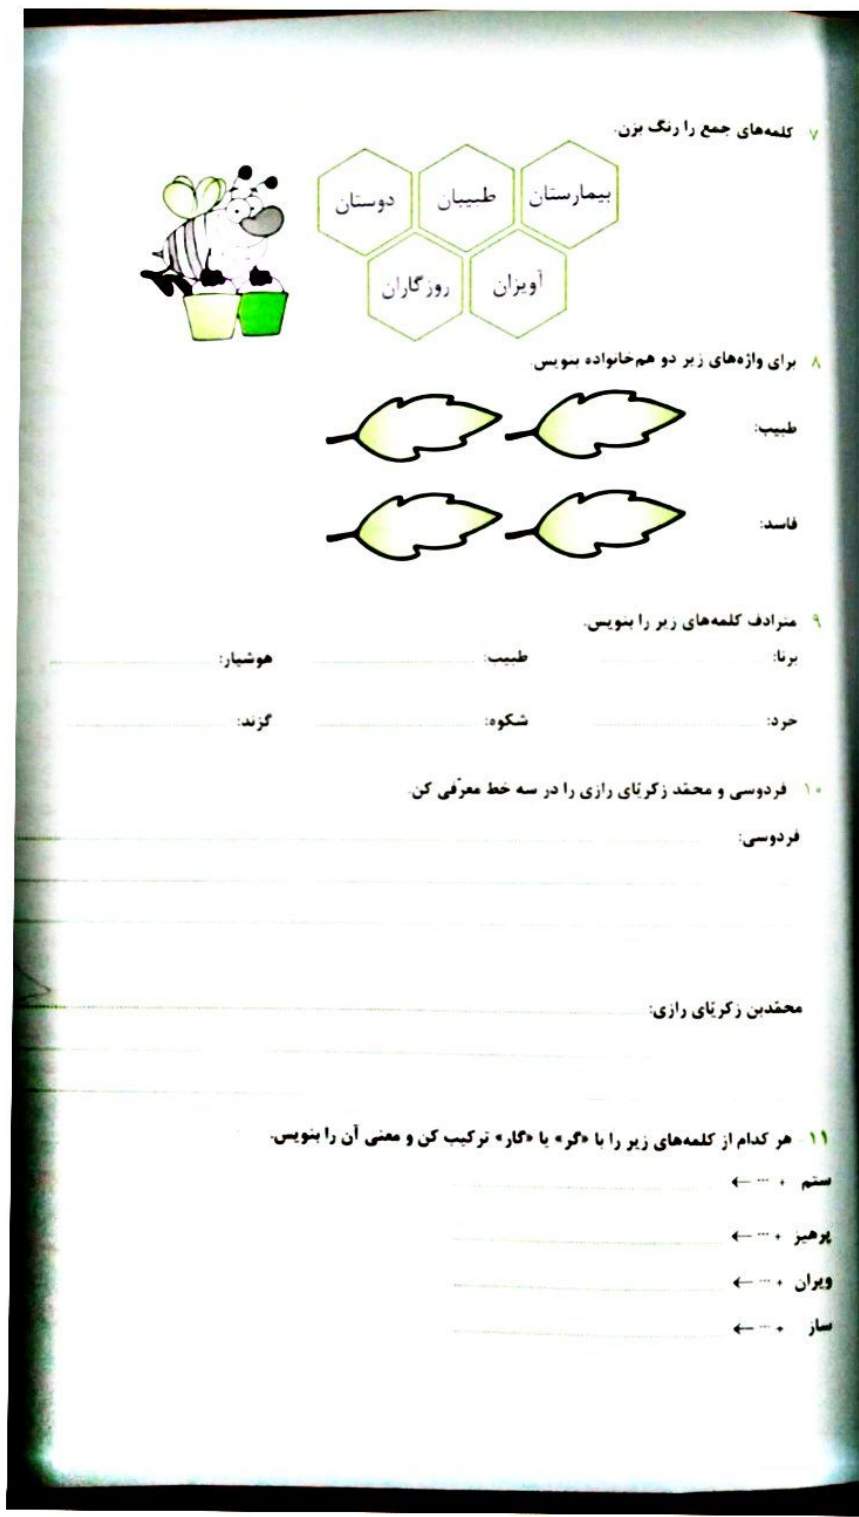 ۷ کلمه‌های جمع را رنگ بزن.
بیمارستان طبیبان دوستان
آویزان روزگاران
۸ برای واژه‌های زیر دو هم‌خانواده بنویس.
طبیب:
فاسد:
۹ مترادف کلمه‌های زیر را بنویس.
برنا: طبیب: هوشیار:
خرد: شکوه: گزند:
۱۰ فردوسی و محمّد زکریّای رازی را در سه خط معرّفی کن.
فردوسی:
محمّدبن زکریّای رازی:
۱۱ هر کدام از کلمه‌های زیر را با «گر» یا «گار» ترکیب کن و معنی آن را بنویس.
ستم + ... ←
پرهیز + ... ←
ویران + ... ←
ساز + ... ←